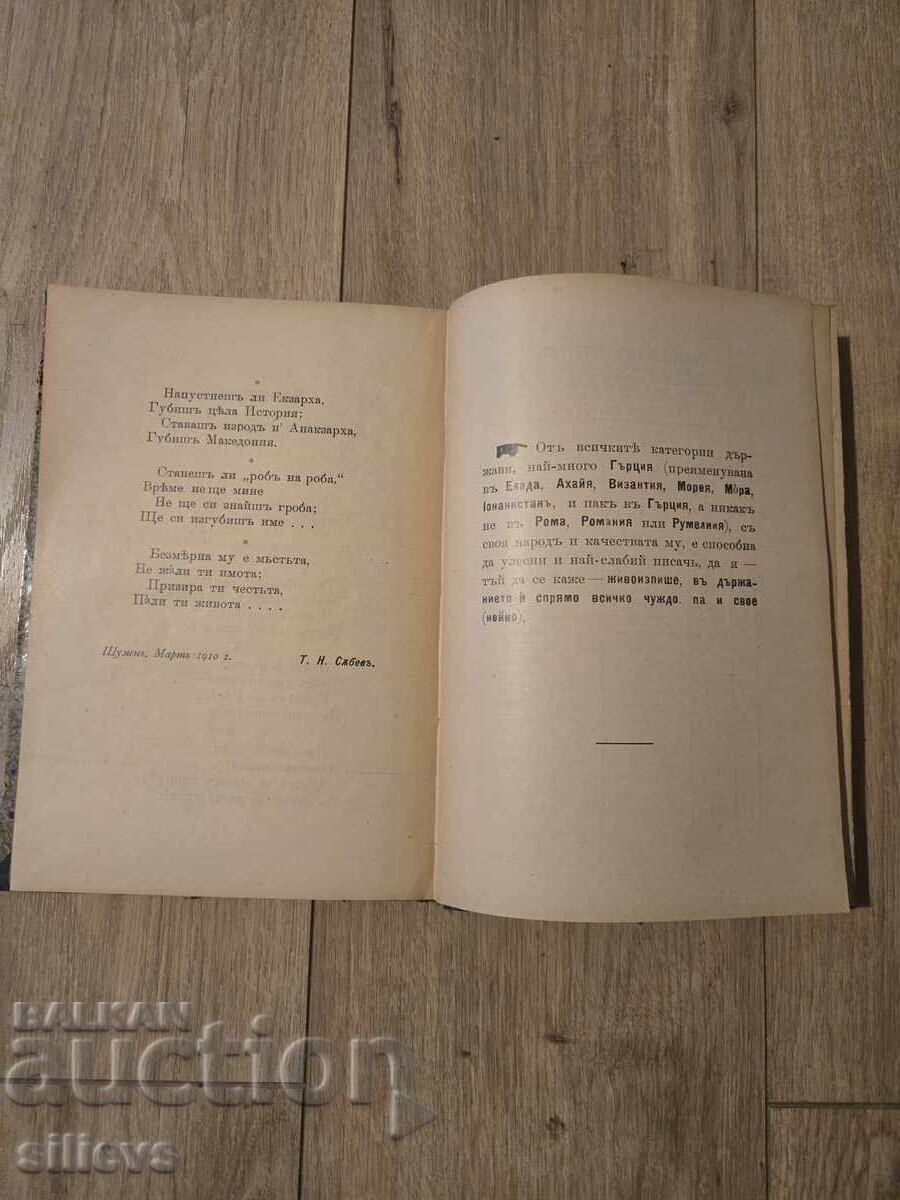 *
Напустнешъ ли Екзарха,
Губишъ цѣла История;
Ставашъ изродъ и' Анакзарха,
Губишъ Македония.
*
Станешъ ли „робъ на роба,“
Врѣме не ще мине
Не ще си знайшъ гроба;
Ще си изгубишъ име . . .
*
Безмѣрна му е мьстьта,
Не жѫли ти имота;
Призира ти честьта,
Пѫли ти живота . . . .
Шуменъ, Мартъ 1910 г. Т. Н. Сѫбевъ.
Отъ всичкитѣ категории дър-
жави, най-много Гърция (преименувана
въ Елада, Ахайя, Византия, Морея, Мора,
Іонанистанъ, и пакъ въ Гърция, а никакъ
не въ Рома, Романия или Румелиия), съ
своя народъ и качествата му, е способна
да улесни и най-слабий писачъ, да я —
тъй да се каже — живоизпише, въ държ-
анието ѝ спрямо всичко чуждо. па и свое
(нейно).
BALKAN
auction
sillevs